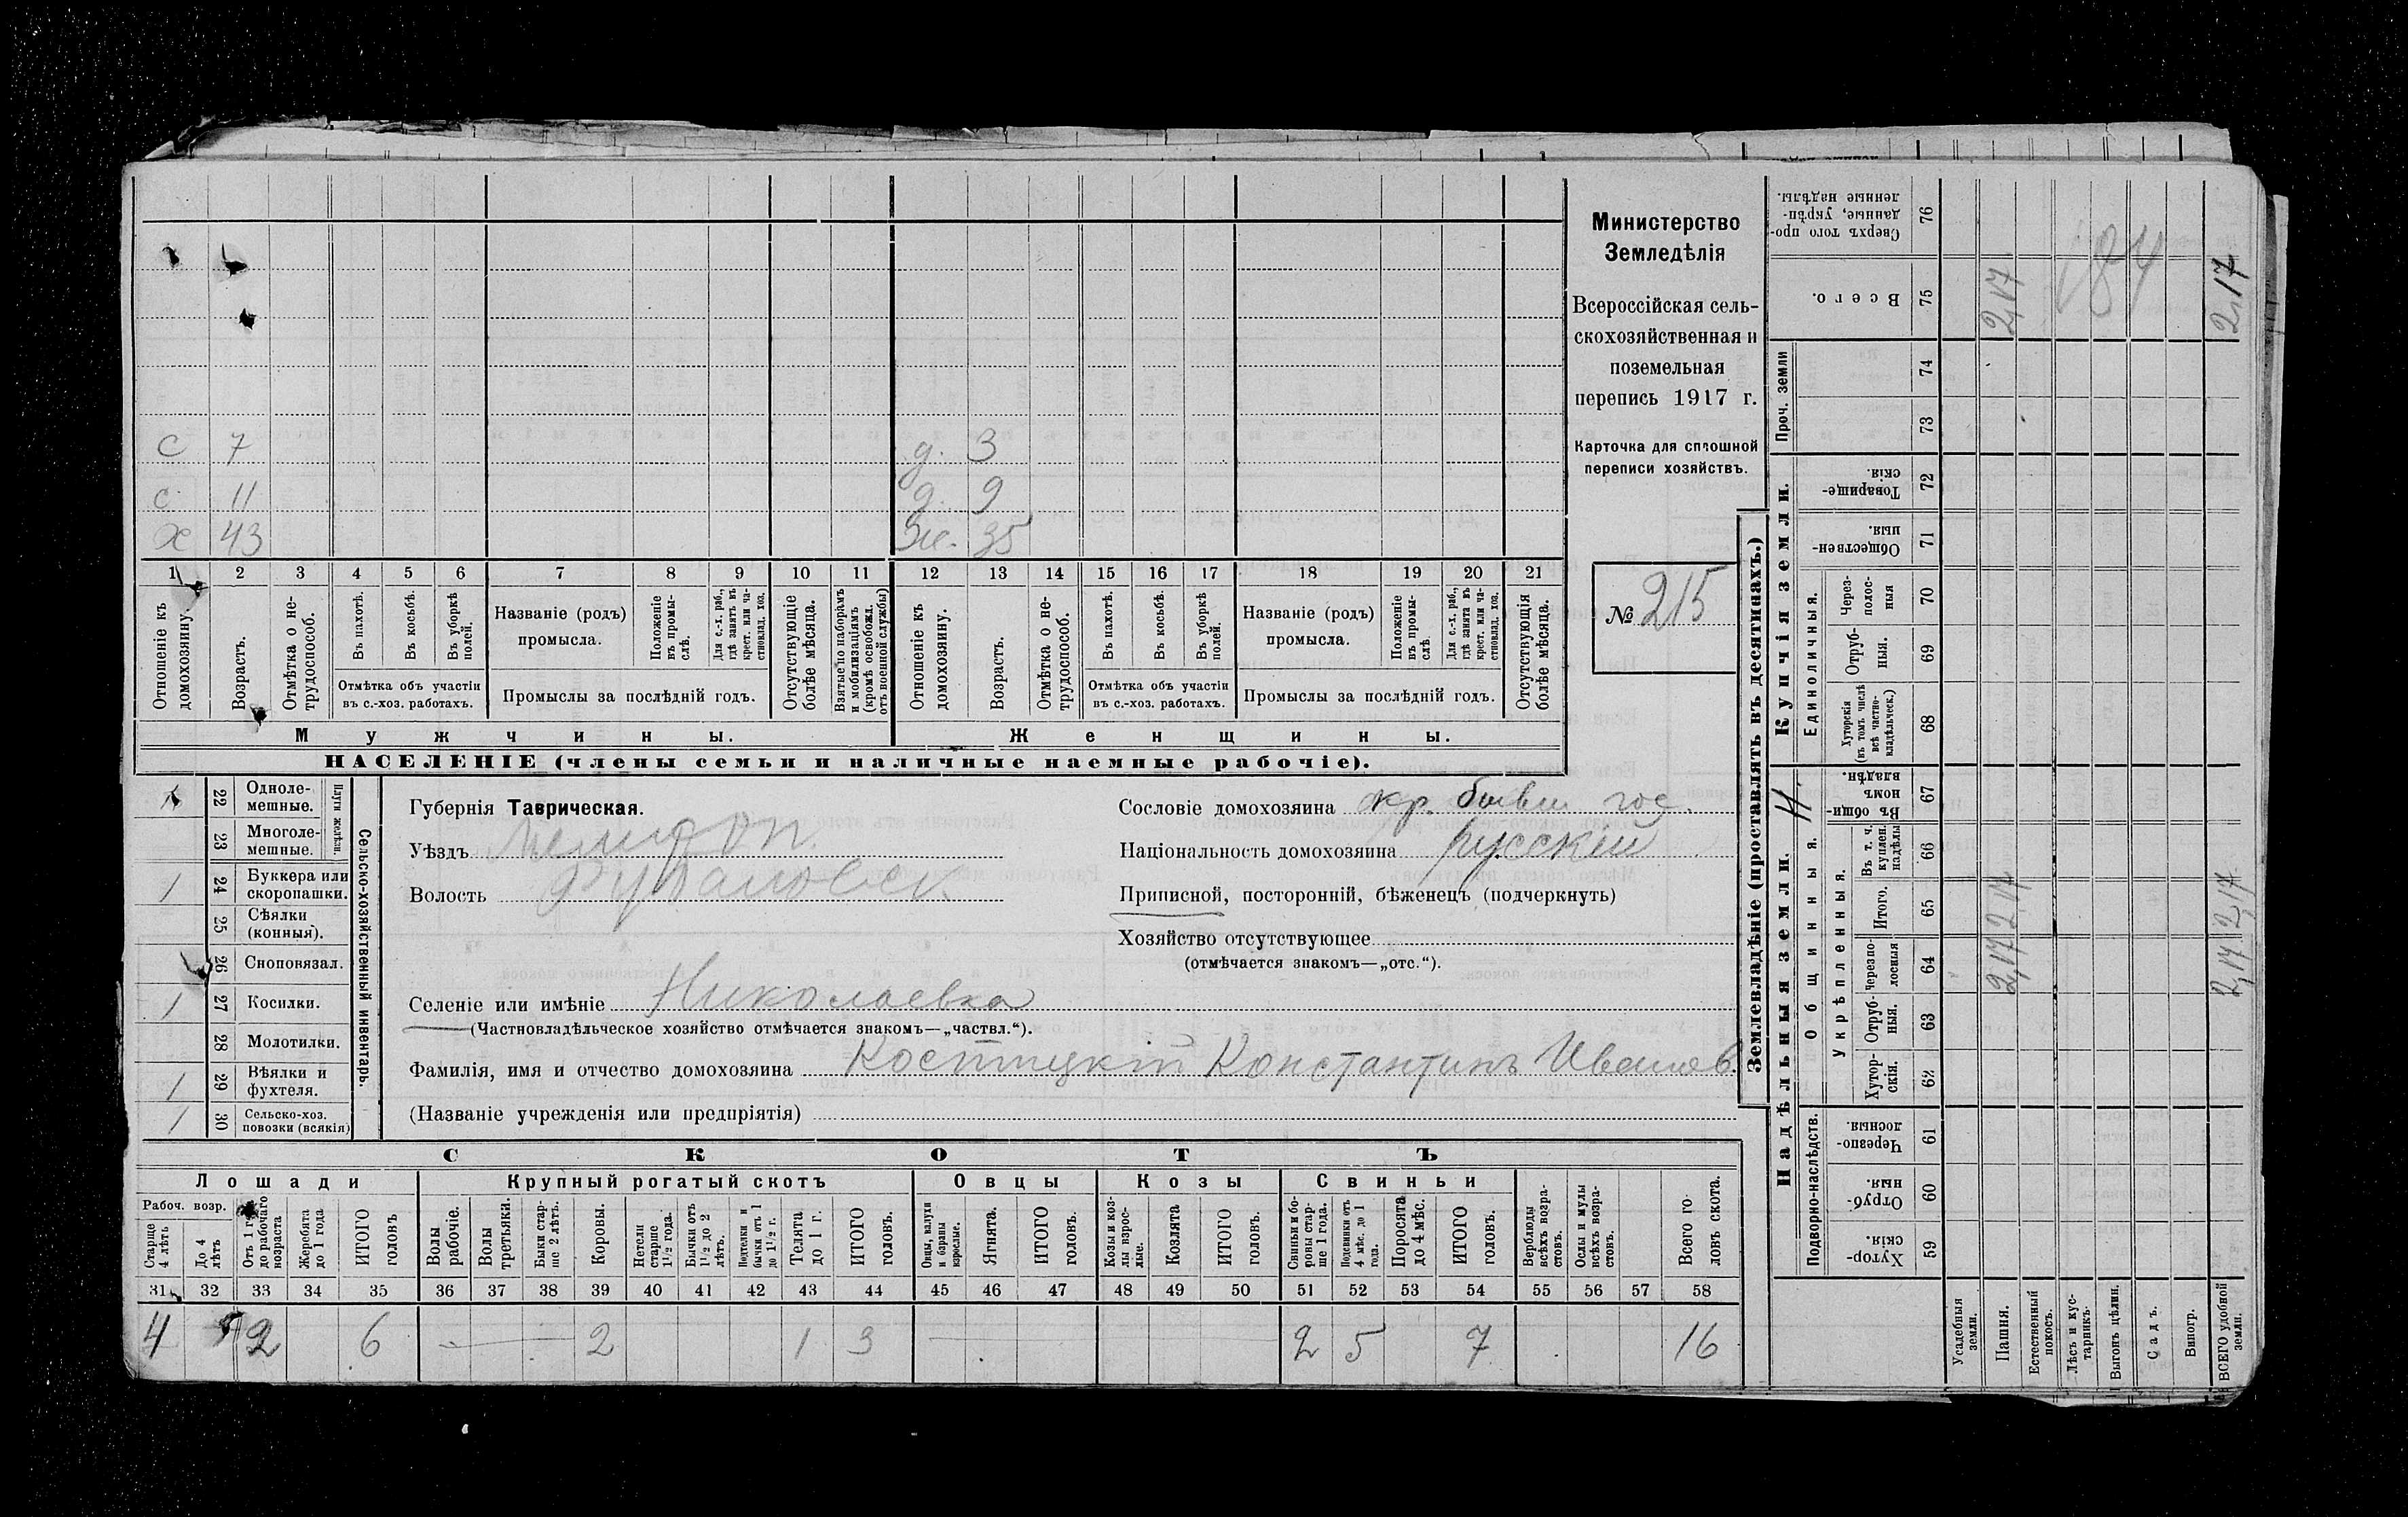 Министерство
Земледѣлія
Всероссійская сель-
скохозяйственная и
поземельная
перепись 1917 г.
Карточка для сплошной
переписи хозяйствъ.
№ 215
С 7 д. 3
с. 11 д. 9
Х 43 Ж. 35
1 2 3 4 5 6 7 8 9 10 11 12 13 14 15 16 17 18 19 20 21
Отношеніе къ домохозяину.
Возрастъ.
Отмѣтка о не-трудоспособ.
Въ пахотѣ.
Въ косьбѣ.
Въ уборкѣ полей.
Отмѣтка объ участіи
въ с.-хоз. работахъ.
Названіе (родъ)
промысла.
Положеніе въ промы-слѣ.
Для с.-х. раб., гдѣ занятъ въ крест. или ча-стновлад. хоз.
Промыслы за послѣдній годъ.
Отсутствующіе болѣе мѣсяца.
Взятые по наборамъ и мобилизаціямъ (кромѣ освобожд. отъ военной службы)
Отношеніе къ домохозяину.
Возрастъ.
Отмѣтка о не-трудоспособ.
Въ пахотѣ.
Въ косьбѣ.
Въ уборкѣ полей.
Отмѣтка объ участіи
въ с.-хоз. работахъ.
Названіе (родъ)
промысла.
Положеніе въ промы-слѣ.
Для с.-х. раб., гдѣ занята въ крест. или ча-стновлад. хоз.
Промыслы за послѣдній годъ.
Отсутствующія болѣе мѣсяца.
Мужчины. Женщины.
НАСЕЛЕНІЕ (члены семьи и наличные наемные рабочіе).
Сельско-хозяйственный инвентарь.
Плуги желѣзн.
22 Одноле-мешные.
23 Многоле-мешные.
1 24 Буккера или скоропашки.
25 Сѣялки (конныя).
26 Сноповязал.
1 27 Косилки.
28 Молотилки.
1 29 Вѣялки и фухтеля.
1 30 Сельско-хоз. повозки (всякія)
Губернія Таврическая.
Уѣздъ Мелитоп.
Волость
Селеніе или имѣніе Николаевка
(Частновладѣльческое хозяйство отмѣчается знакомъ—„частвл.“).
Фамилія, имя и отчество домохозяина Костицкій Константинъ Иванов.
(Названіе учрежденія или предпріятія)
Сословіе домохозяина кр. бывш гос.
Національность домохозяина русскій
Приписной, посторонній, бѣженецъ (подчеркнуть)
Хозяйство отсутствующее
(отмѣчается знакомъ—„отс.“).
СКОТЪ
Лошади Крупный рогатый скотъ Овцы Козы Свиньи
Рабоч. возр.
Старше 4 лѣтъ
До 4 лѣтъ
Отъ 1 года до рабочаго возраста
Жеребята до 1 года
ИТОГО головъ
Волы рабочіе.
Волы третьяки.
Быки стар-ше 2 лѣтъ.
Коровы.
Нетели старше 1½ года.
Бычки отъ 1½ до 2 лѣтъ.
Подтелки и бычки отъ 1 до 1½ г.
Телята до 1 г.
ИТОГО головъ.
Овцы, валухи и бараны взрослые.
Ягнята.
ИТОГО головъ.
Козы и коз-лы взрос-лые.
Козлята
ИТОГО головъ.
Свиньи и бо-ровы стар-ше 1 года.
Подсвинки отъ 4 мѣс. до 1 года.
Поросята до 4 мѣс.
ИТОГО головъ.
Верблюды всѣхъ возра-стовъ.
Ослы и мулы всѣхъ возра-стовъ.
Всего го-ловъ скота.
31 32 33 34 35 36 37 38 39 40 41 42 43 44 45 46 47 48 49 50 51 52 53 54 55 56 57 58
4 2 6 2 1 3 2 5 7 16
Землевладѣніе (проставлять въ десятинахъ.)
Купчія земли.
Надѣльныя земли. Н.
Сверхъ того про-данные, укрѣп-ленные надѣлы. 76
Всего. 75 2,17 184 2,17
Проч. земли 74
73
Товарище-скія. 72
Обществен-ныя. 71
Единоличныя.
Через-полос-ныя 70
Отруб-ныя. 69
Хуторскія (въ томъ числѣ всѣ частно-владѣльческ.) 68
Общинныя.
Въ общин-номъ владѣн. 67
Укрѣпленныя.
Въ т. ч. куплен. надѣлы 66
Итого. 65 2,17 2,17
Черезпо-лосныя 64 2,17 2,17
Отруб-ныя. 63
Хутор-скія. 62
Подворно-наслѣдств.
Черезпо-лосныя. 61
Отруб-ныя. 60
Хутор-скія. 59
Усадебныя земли.
Пашня.
Естественный покосъ.
Лѣсъ и кус-тарникъ.
Выгонъ цѣлин.
Садъ.
Виногр.
ВСЕГО удобной земли.